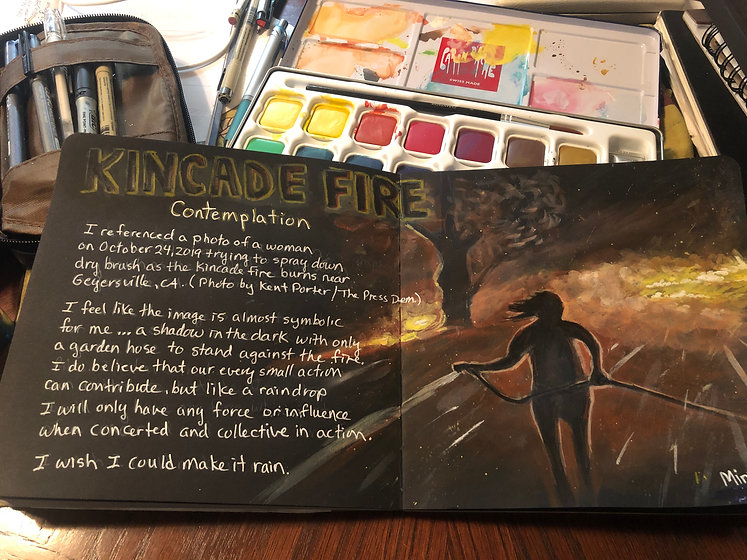 CARAN D'ACHE
SWISS MADE
KINCADE FIRE
Contemplation
I referenced a photo of a woman
on October 24, 2019 trying to spray down
dry brush as the Kincade fire burns near
Geyersville, CA. (Photo by Kent Porter/The Press Dem)
I feel like the image is almost symbolic
for me... a shadow in the dark with only
a garden hose to stand against the fire.
I do believe that our every small action
can contribute, but like a raindrop
I will only have any force or influence
when concerted and collective in action.
I wish I could make it rain.